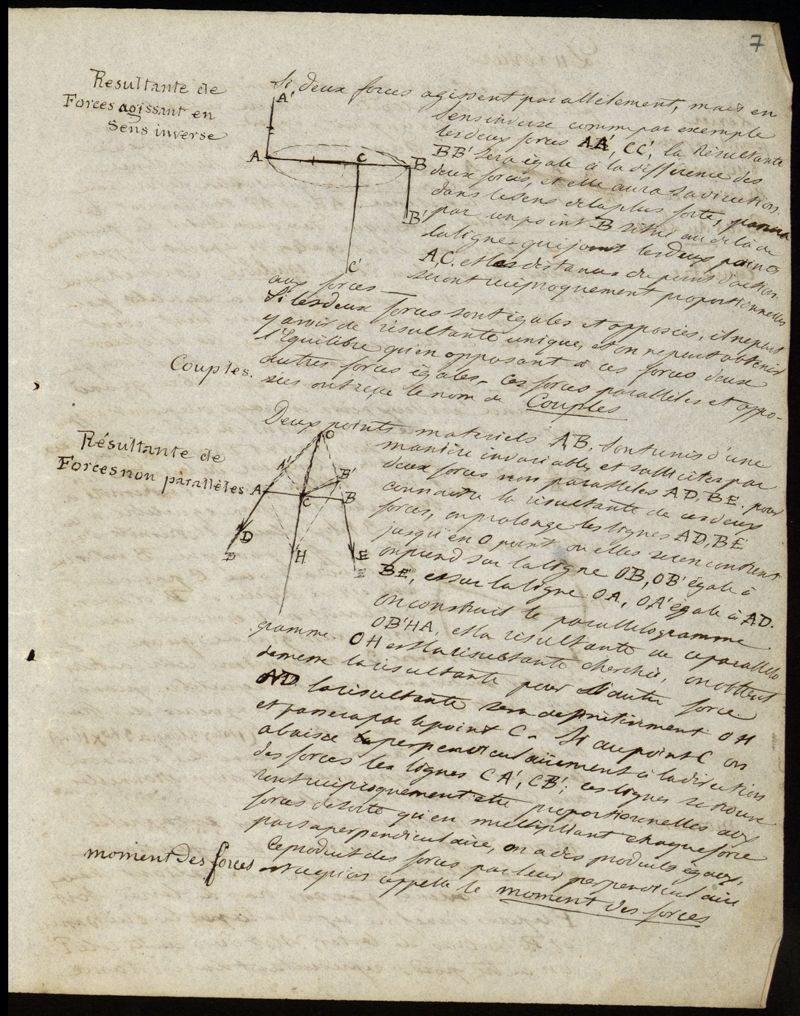 7
Resultante de
Forces agissant en
Sens inverse
Si deux forces agissent parallèlement, mais en
sens inverse comme par exemple
les deux forces AA', CC', la Résultante
BB' sera égale à la différence des
deux forces, et elle aura sa direction
dans le sens de la plus forte,
par un point B situé au delà de
la ligne qui joint les deux points
A, C. et les distances du point d'action
seront réciproquement proportionnelles
aux forces
A'
A
C
B
B'
C'
Si les deux forces sont égales et opposées, il ne peut
y avoir de résultante unique, et on ne peut obtenir
l'Equilibre qu'en opposant à ces forces deux
Couples.
autres forces égales. Ces forces parallèles et oppo-
sées ont reçu le nom de Couples
Résultante de
Forces non parallèles
Deux points matériels A, B, sont unis d'une
manière invariable, et sollicités par
deux forces non parallèles AD, BE, pour
connaître la résultante de ces deux
forces, on prolonge les lignes AD, BE
jusqu'en O point où elles se rencontrent
on prend sur la ligne OB, OB' égale à
BE, et sur la ligne OA, OA' égale à AD.
on construit le parallélogramme
OB'HA, et la résultante de ce parallélo
gramme OH est la résultante cherchée, on obtient
O
A'
B'
A
C
B
D
D
H
E
E
de même la résultante pour l'autre force
AD la résultante sera définitivement OH
et passera par le point C. Si au point C on
abaisse perpendiculairement à la direction
des forces les lignes CA', CB', ces lignes se trouve
ront réciproquement être proportionnelles aux
forces de sorte qu'en multipliant chaque force
par sa perpendiculaire, on a des produits égaux.
moment des forces
Ce produit des forces par leur perpendiculaire
est ce qu'on appelle le moment des forces